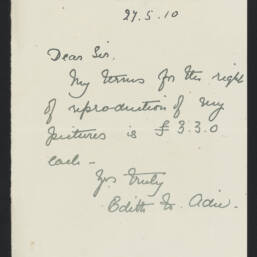 27.5.10
Dear Sir,
My terms for the right
of reproduction of my
pictures is £3.3.0
each -
Yrs truly
Edith H. Adie.